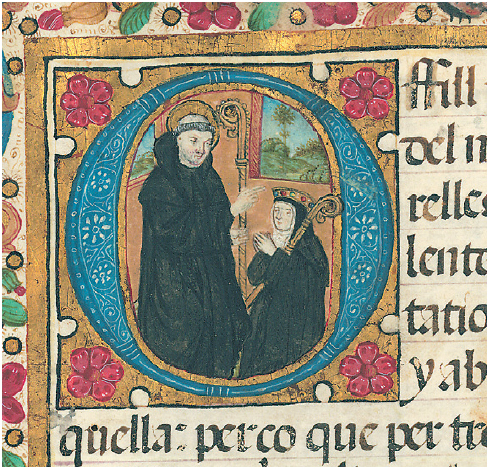 Offill
del m
relles
lente
tatio
y ab
quella: perco que per tre